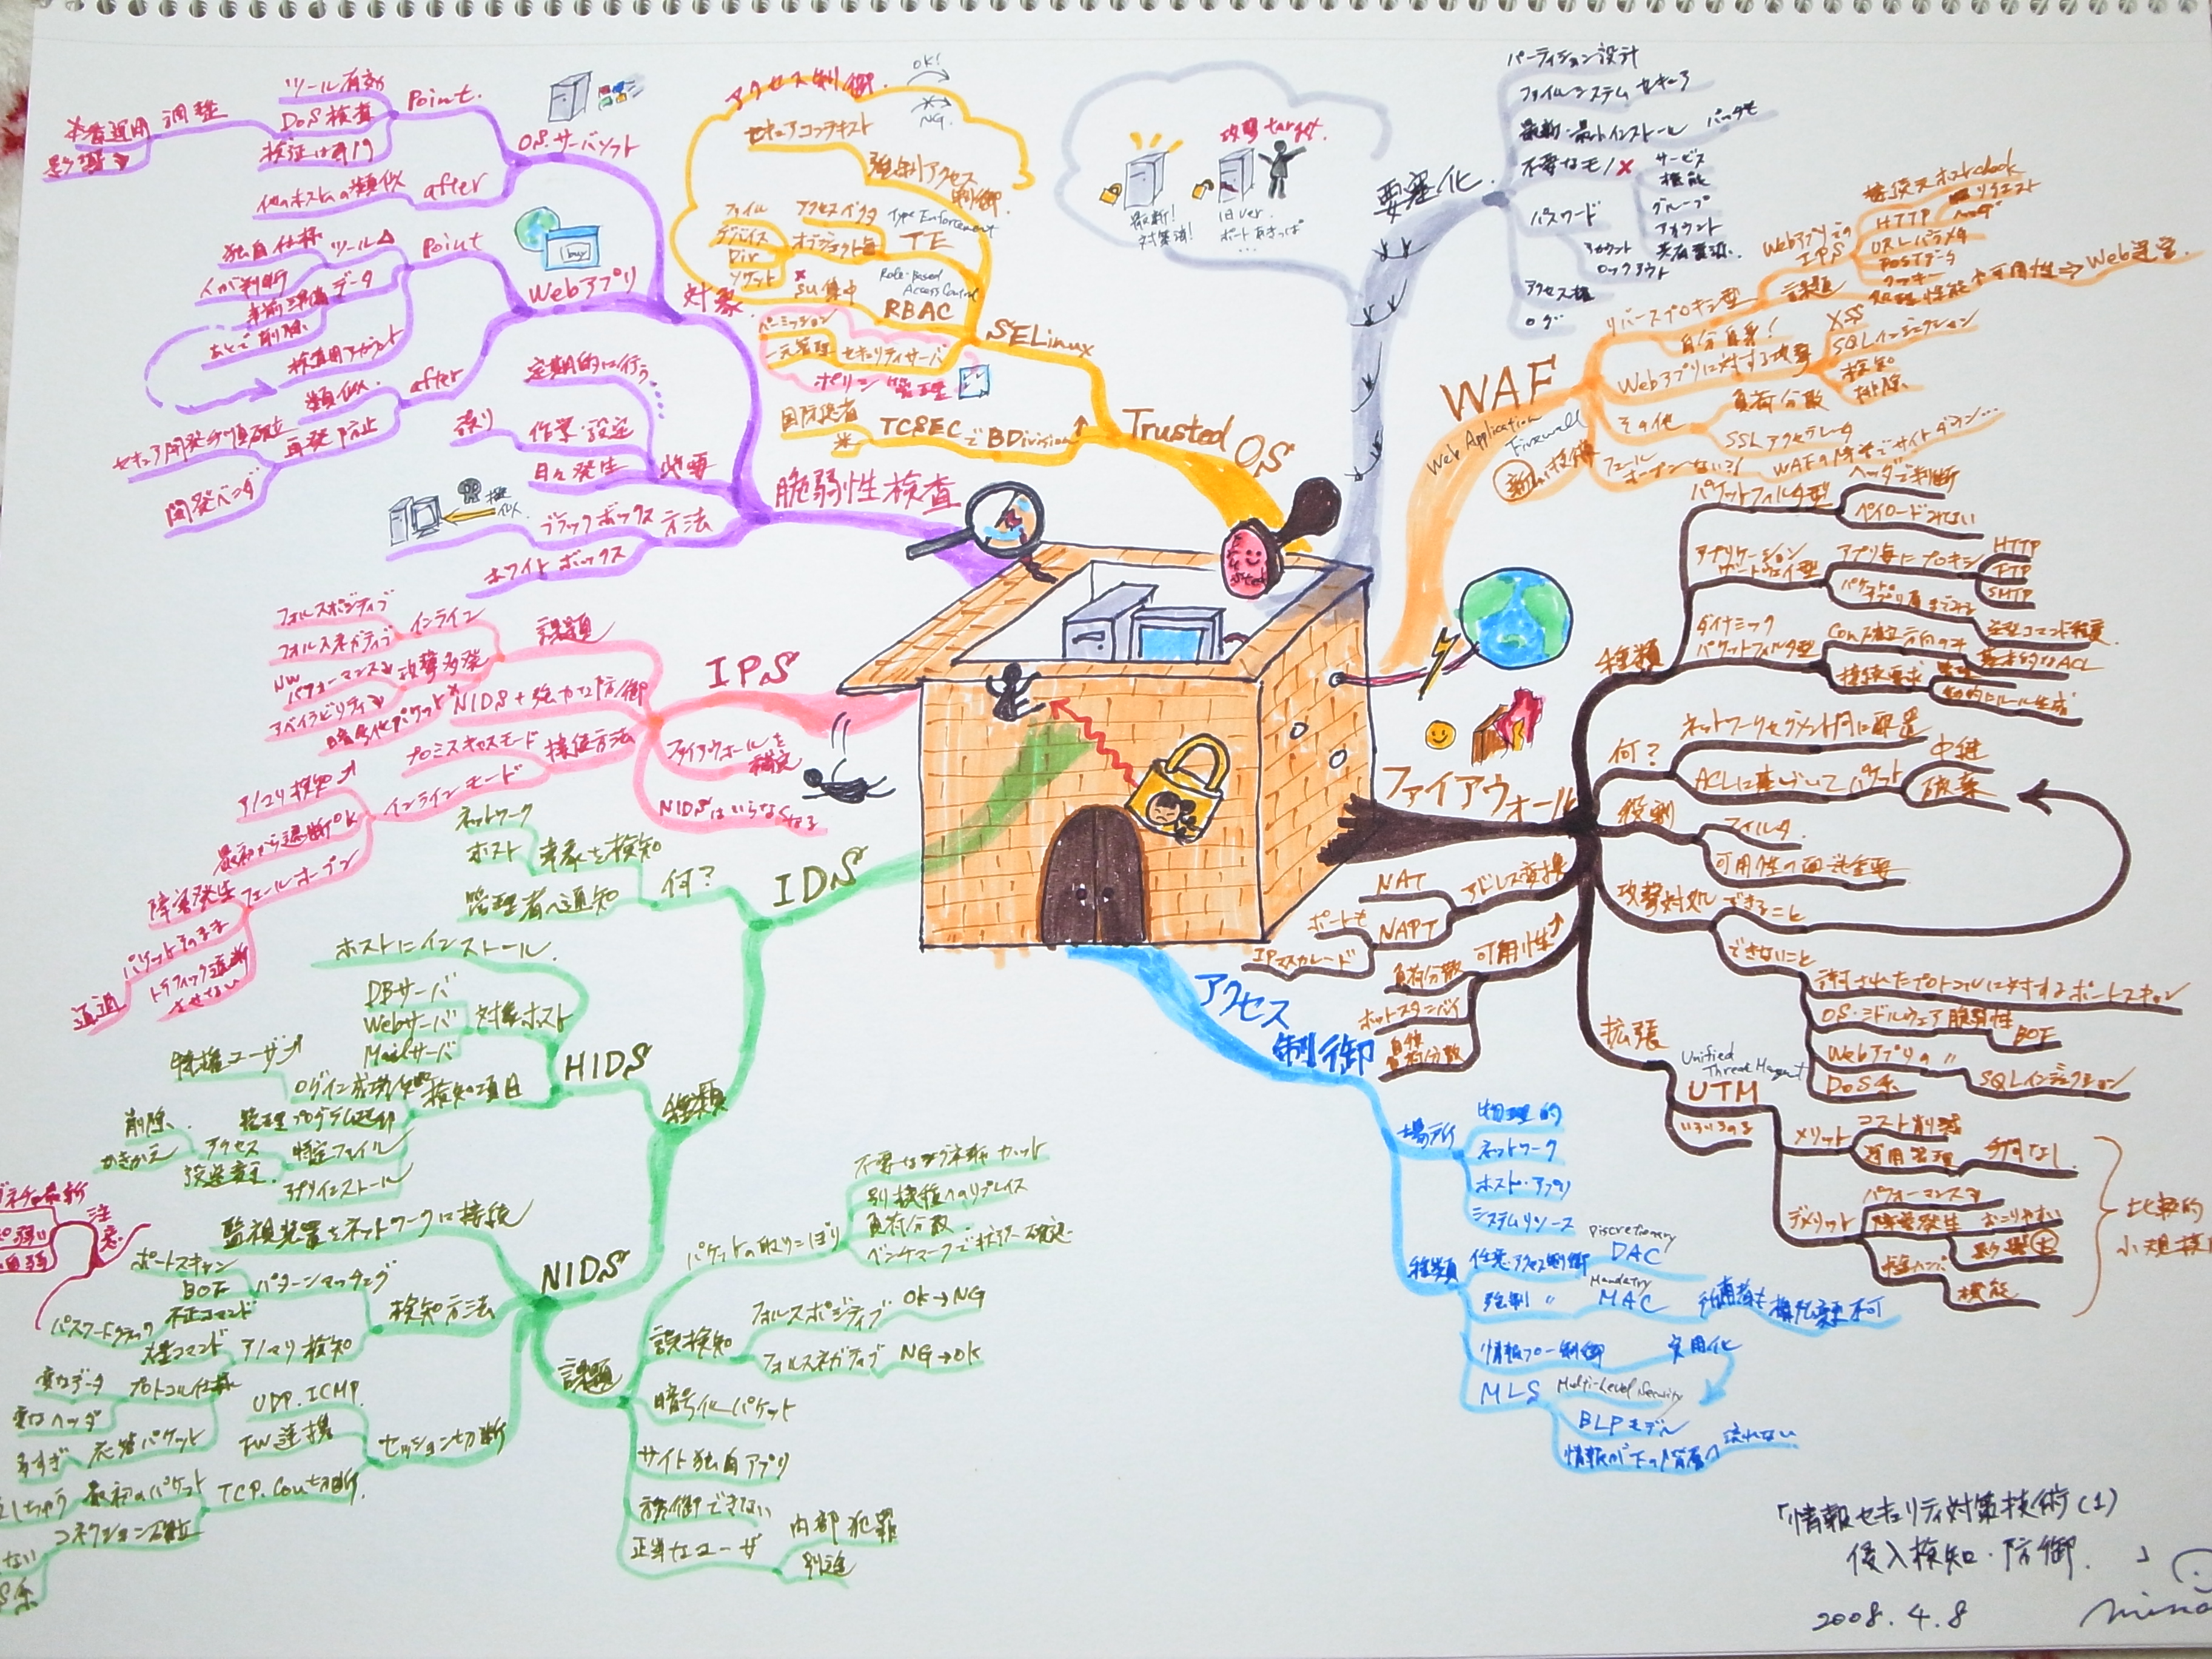 脆弱性検査
対象
OS.サーバソフト
Point.
ツール有効
DoS検査
調整
本番運用
影響
after
他のホストの類似
Webアプリ
Point
ツール△
独自仕様
人が判断
データ
事前準備
あとで削除
検査用アカウント
after
類似.
再発防止
セキュア開発手順確立
開発ベンダ
定期的に行う
作業・設定
誤り
日々発生
方法
ブラックボックス
ホワイトボックス
Trusted OS
SELinux
アクセス制御.
OK!
NG.
セキュアコンテキスト
強制アクセス
制御.
Type Enforcement
TE
アクセスベクタ
オブジェクト毎
ファイル
デバイス
Dir
ソケット
Role-Based
Access Control
RBAC
su集中
パーミッション
一元管理
セキュリティサーバ
ポリシー管理
TCSECでBDivision↑
攻撃target.
最新!
対策済!
旧ver.
ポートあきっぱ
...
要塞化.
パーティション設計
ファイルシステムセキュア
最新・最小インストール
パッチも
不要なモノ×
サービス
機能
グループ
アカウント
パスワード
アカウント
ロックアウト
アクセス権
ログ
WAF
Web Application
Firewall
新しい技術
リバースプロキシ型
自分自身!
課題
WebアプリでのIPS
HTTP
リクエスト
ヘッダ
URLパラメタ
POSTデータ
クッキー
処理性能や可用性⇒Web運営.
Webアプリに対する攻撃
XSS
SQLインジェクション
検知
排除
その他
負荷分散
SSLアクセラレータ
フェール
オープンない?!
WAFの障害でサイトダウン…
ファイアウォール
種類
パケットフィルタ型
ヘッダで判断
ペイロードみてない
アプリケーション
ゲートウェイ型
アプリ毎にプロキシ
HTTP
FTP
SMTP
ダイナミック
パケットフィルタ型
基本的なACL
動的にルール生成
何?
ネットワークセグメント間に配置
ACLに基づいて
パケット
中継
破棄
役割
フィルタ.
可用性の面も重要
攻撃対処
できること
できないこと
許可されたプロトコルに対するポートスキャン
OS・ミドルウェア脆弱性
BOF
Webアプリの 〃
SQLインジェクション
DoS系
アドレス変換
NAT
NAPT
ポートも
IPマスカレード
可用性↑
負荷分散
ホットスタンバイ
拡張
Unified
Threat Managemt
UTM
いろいろのる
メリット
コスト削減
運用管理
手間なし.
デメリット
パフォーマンス↓
障害発生
おこりやすい
影響大
機能
比較的
小規模
アクセス
制御
場所
物理的
ネットワーク
ホスト・アプリ
システムリソース
種類
任意アクセス制御
Discretionary
DAC
強制 〃
Mandatory
MAC
所有者も
変更不可
情報フロー制御
実用化
MLS
Multi-Level Security
BLPモデル
情報が下の階層へ
流れない
IPS
課題
インライン
フォルスポジティブ
フォルスネガティブ
攻撃多発
NW
パフォーマンス↓
アベイラビリティ↓
暗号化パケット×
NIDS+強力な防御
接続方法
プロミスキャスモード
インラインモード
アノマリ検知↑
最初から遮断OK
フェールオープン
障害発生
パケットそのまま
通過
トラフィック遮断
させない
ファイアウォールを
補完
NIDSはいらなくなる
IDS
何?
事象を検知
ネットワーク
ホスト
管理者へ通知
種類
HIDS
ホストにインストール.
対象ホスト
DBサーバ
Webサーバ
Mailサーバ
検知項目
ログイン成功/失敗
特権ユーザ
管理プログラム起動
特定ファイル
アクセス
削除.
かきかえ
設定変更.
アプリインストール
NIDS
監視装置をネットワークに接続
検知方法
パターンマッチング
ポートスキャン
BOF
不正コマンド
パスワードクラック
アノマリ検知
プロトコル仕様
変なデータ
変なヘッダ
応答パケット
多すぎ
セッション切断
UDP.ICMP.
FW連携
TCP.Con切断.
最初のパケット
コネクション確立
注意.
課題
パケットの取りこぼし
不要なシグネチャカット
別機種へのリプレイス
負荷分散.
誤検知
フォルスポジティブ
OK→NG
フォルスネガティブ
NG→OK
暗号化パケット
サイト独自アプリ
防御できない
正当なユーザ
内部犯罪
別途
「情報セキュリティ対策技術(1)
侵入検知・防御.」
2008.4.8